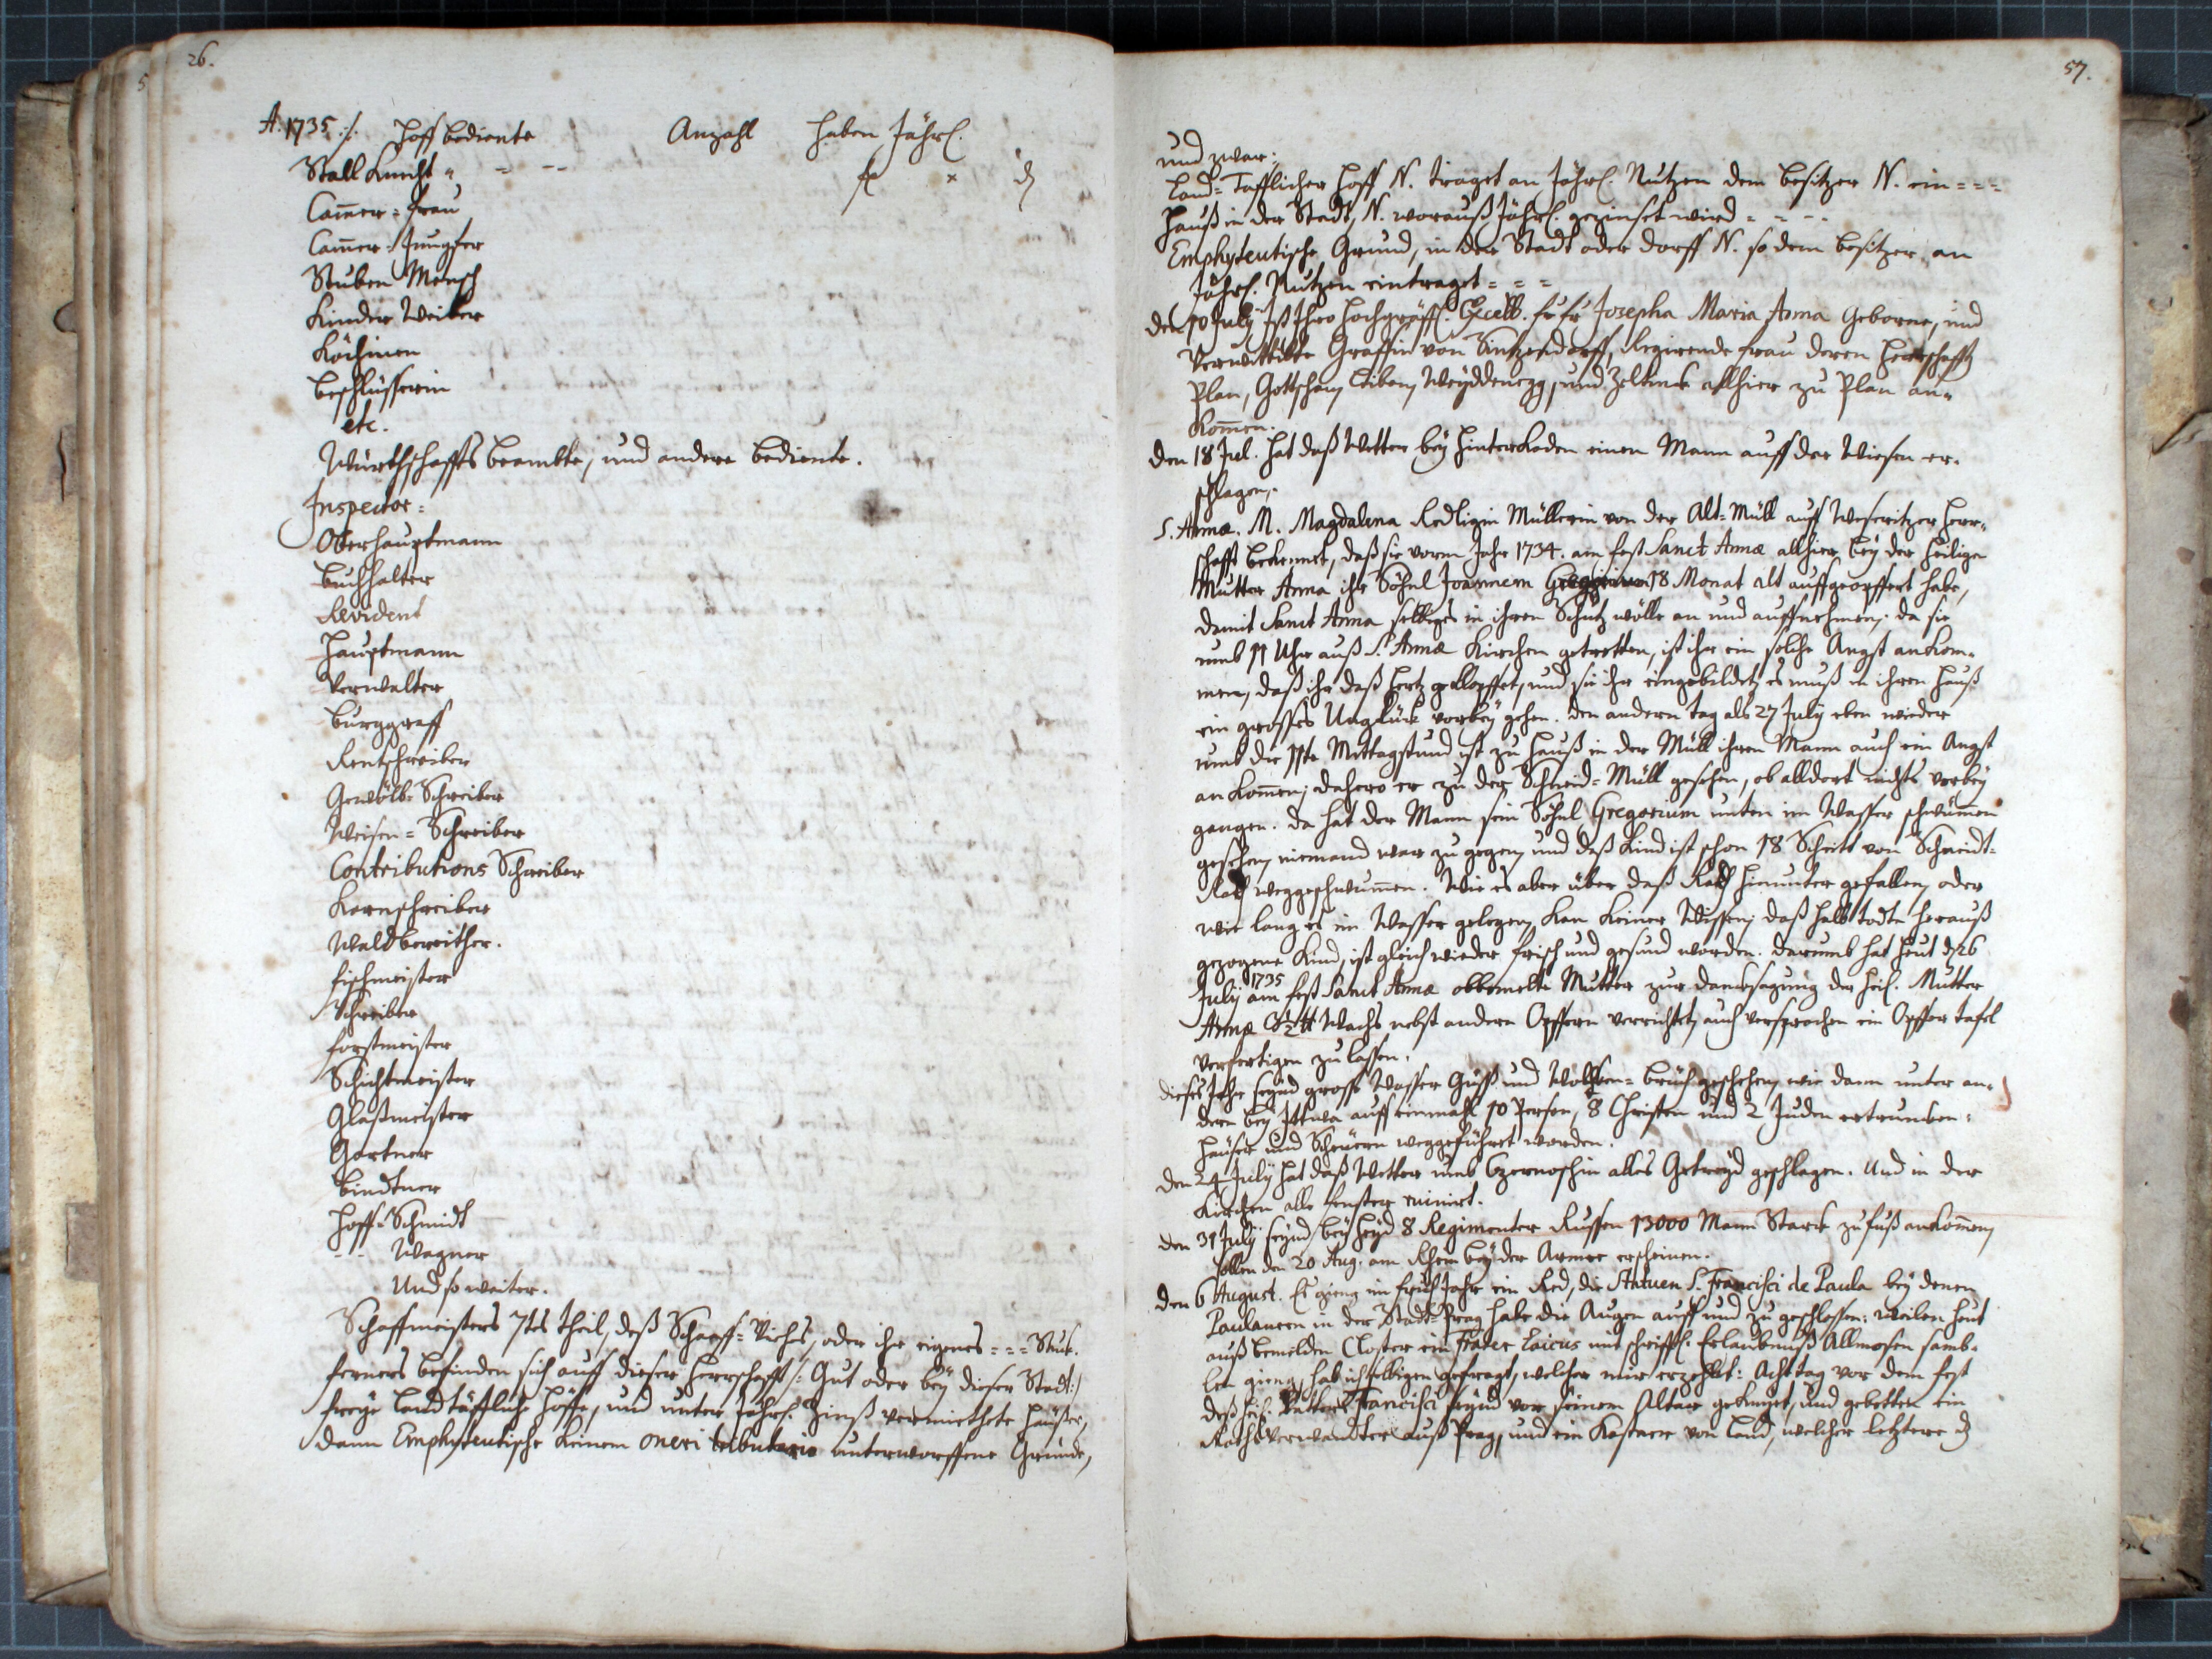 26.
A. 1735 ./. Hoff bediente Anzahl haben Jährl.
Stall Knecht = - -- f x d
Cam̄er-frau
Cam̄er-Jungfer
Stuben Mensch
Kinder Weiber
Köchinen
Beschlüsserin
etc.
Würthschaffts beambte, und andere bediente.
Inspector =
Oberhauptmann
Buchhalter
Revident
Hauptmann
Verwalter
Burggraff
Rentschreiber
Gewölb-Schreiber
Weisen-Schreiber
Contributions Schreiber
Kornschreiber
Waldbereither.
Fischmeister
Schreiber
Forstmeister
Schichtmeister
Glaßmeister
Gartner
Bindtner
Hoff-Schmidt
--- Wagner
Und so weiter.
Schaffmeisters 7tes theil, deß Schaaff-Viehs, oder ihr eigenes = = = Stuk.
ferners befinden sich auff dieser Herrschafft /: Gut oder bey dieser Stadt :/
freye landtäffliche Höffe, und unter Jährl. Zinß vermiethete Häuser,
dann Emphyteutische keinem oneri tributario unterworffene Gründe,
57.
und zwar:
Land-Tafflicher Hoff N. traget an Jährl. Nutzen dem besitzer N. ein = = =
Hauß in der Stadt N. worauß Jährl. gezinset wird = = - -
Emphyteutische Grund, in der Stadt oder dorff N. so dem besitzer an
Jährl. Nutzen eintraget = = =
den 10 July Ist Ihro Hochgräffl. Excell. fr fr Josepha Maria Anna Geborne, und
Verwittibte Gräffin von Sintzendorff, Regirende frau deren Herrschafften
Plan, Gottschau, und allhier zu Plan an-
kom̄en.
den 18 Jul. hat daß Wetter bey Hinterkoden einen Mann auff der Wiesen er-
schlagen.
S. Annæ. M. Magdalena Redligin Müllerin von der Alt-Müll auff Weseritzer Herr-
schafft bekennet, daß sie vorm Jahr 1734. am fest Sanct Annæ allhier bey der heiligen
Mutter Anna ihr Söhnl Joannem Gregorium 18 Monat alt auffgeopffert habe,
damit Sanct Anna selbiges in ihren Schutz wölle an und auffnehmen; da sie
umb 11 Uhr auß S. Annæ Kirchen getretten, ist ihr ein solche Angst ankom-
men, daß ihr daß Hertz geklopffet, und sie ihr eingebildet, es muß in ihren Hauß
ein grosses Unglück vorbey gehen. den andern tag als 27 July eben wieder
umb die 11te Mittagstund ist zu Hauß in der Müll ihren Mann auch ein Angst
ankom̄en; dahero er zu der Schneid-Müll gesehen, ob alldort nichts vorbey
gangen. da hat der Mann sein Söhnl Gregorium unten im Wasser schwim̄en
gesehen, niemand war zu gegen, und daß Kind ist schon 18 Schritt von Schneidt-
Rad weggeschwum̄en. Wie es aber über daß Rad hinunter gefallen, oder
wie lang es im Wasser gelegen, kan keiner Wissen; daß halb todte herauß
gezogene Kind, ist gleich wieder frisch und gesund worden. darumb hat heut d 26
July 1735 am fest Sanct Annæ obbemelte Mutter zur dancksagung der heil. Mutter
Annæ ½ ℔ Wachs nebst andern Opffern verrichtet, auch versprochen ein Opffer tafel
verfertigen zu lassen.
dieses Jahr seynd grosse Wasser Güss und Wolcken-brüch geschehen, wie dann unter an-
dern bey auff einmahl 10 Person, 8 Christen und 2 Juden ertruncken:
Häuser und Scheüern weggeführet worden.
den 24 July hat daß Wetter umb Czernoschin alles Getreyd geschlagen. Und in der
Kirchen alle fenster ruinirt.
den 31 July seynd bey Heyd 8 Regimenter Russen 13000 Mann Starck zu fuß ankom̄en,
sollen den 20 Aug. am Rhein bey der Armee erscheinen.
den 6 August. Es gieng im früh Jahr ein Red, die Statuen S. Francisci de Paula bey denen
Paulanern in der Stadt-Prag habe die Augen auff und zu geschlossen: weilen heut
auß bemelden Closter ein frater Laicus mit schrifftl. Erlaubnuß Allmosen samb-
len gieng, hab ich selbigen gefragt, welcher mir erzehlt: Acht tag vor dem fest
deß heil. Vatters Francisci seynd vor seinem Altar geknyet, und gebetten ein
Rathsverwandter auß Prag, und ein Kastner von Land, welcher letztere d